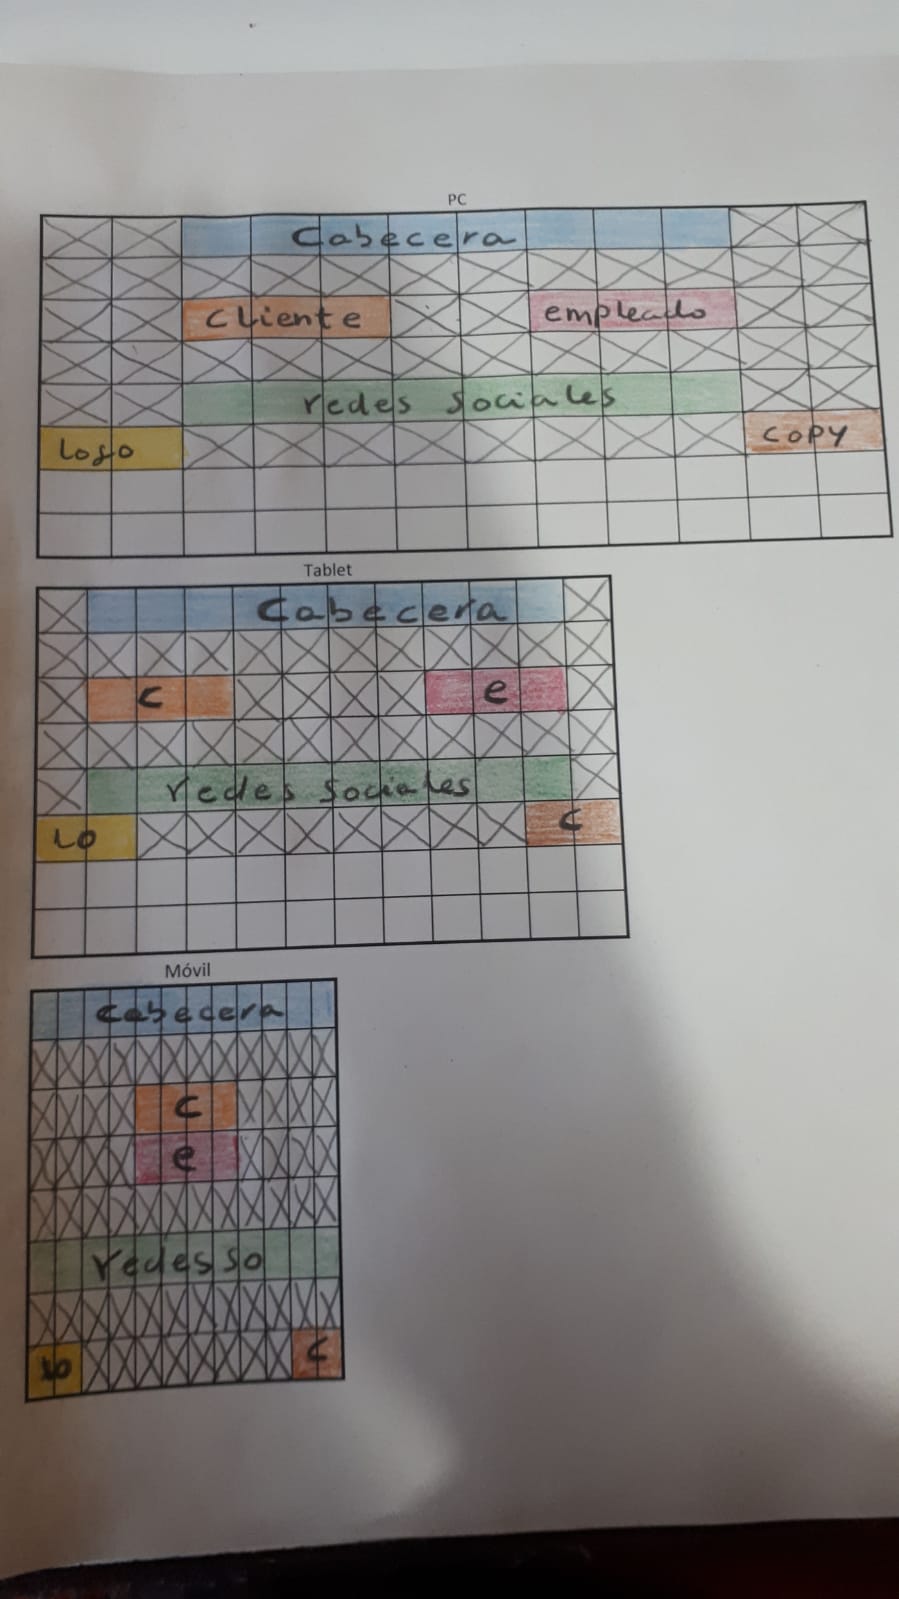 PC
Cabecera
cliente empleado
redes sociales
Logo COPY
Tablet
Cabecera
C e
redes sociales
LO C
Móvil
Cabecera
C
e
redes so
Lo C